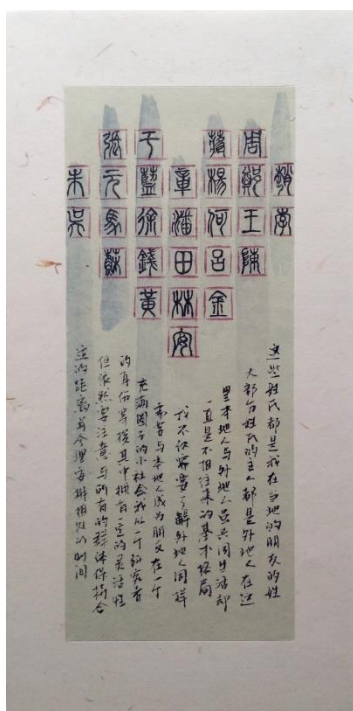 趙李
周鄭王陳
蔣楊何呂金
章潘田林安
于藍徐錢黃
張元馬蘇
朱吳
这些姓氏都是我在当地的朋友的姓
大部分姓氏的主人都是外地人在这
里本地人与外地人虽共同生活却
一直是不相往来的基本格局
我不仅需要了解外地人同样
需要与本地人成为朋友在一个
充满圈子的小社会我以一个研究者
的身份穿梭其中拥有一定的灵活性
但依然要注意与所有的群体保持合
适的距离并合理安排相处的时间